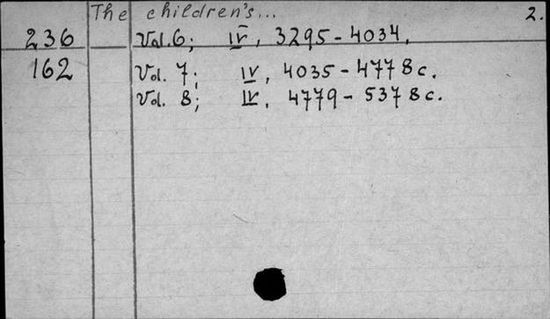 The children's... 2.
236 Vol. 6; IV, 3295-4034.
162 Vol. 7; IV, 4035-4778c.
Vol. 8; IV, 4779-5378c.